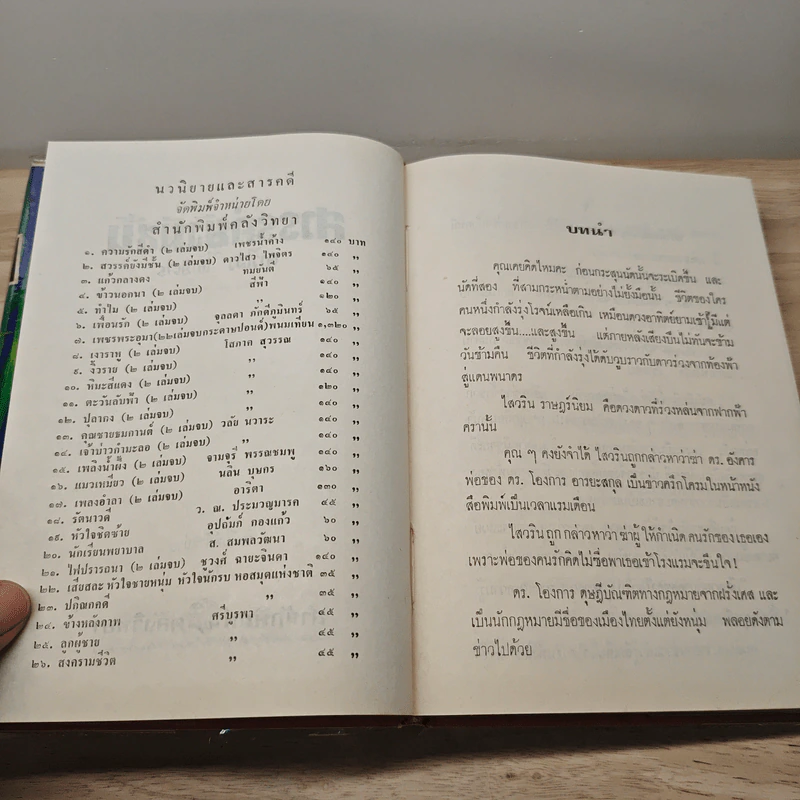 นวนิยายและสารคดี
จัดพิมพ์จำหน่ายโดย
สำนักพิมพ์คลังวิทยา
๑. ความรักสีดำ (๒ เล่มจบ) เพชรน้ำค้าง ๑๔๐ บาท
๒. สวรรค์ยังมีชั้น (๒ เล่มจบ) ดาวไสว ไพจิตร ๑๔๐ ,,
๓. แก้วกลางดง ทมยันตี ๖๕ ,,
๔. ข้าวนอกนา (๒ เล่มจบ) สีฟ้า ๑๔๐ ,,
๕. ทำไม (๒ เล่มจบ) ,, ๑๒๐ ,,
๖. เพื่อนรัก (๒ เล่มจบ) จุลลดา ภักดีภูมินทร์ ๖๕ ,,
๗. เพชรพระอุมา(๒๒เล่มจบกระดาษปอนด์)พนมเทียน ๑,๓๒๐ ,,
๘. เงาราหู (๒ เล่มจบ) โสภาค สุวรรณ ๑๔๐ ,,
๙. งิ้วราย (๒ เล่มจบ) ,, ๑๔๐ ,,
๑๐. หิมะสีแดง (๒ เล่มจบ) ,, ๑๔๐ ,,
๑๑. ตะวันลับฟ้า (๒ เล่มจบ) ,, ๑๒๐ ,,
๑๒. ปุลากง (๒ เล่มจบ) ,, ๑๔๐ ,,
๑๓. คุณชายธมกานต์ (๒ เล่มจบ) วลัย นวาระ ๑๔๐ ,,
๑๔. เจ้าบ่าวกำมะลอ (๒ เล่มจบ) ,, ๑๔๐ ,,
๑๕. เพลิงน้ำผึ้ง (๒ เล่มจบ) จามจุรี พรรณชมพู ๑๔๐ ,,
๑๖. แมวเหมียว (๒ เล่มจบ) นลิน บุษกร ๑๖๐ ,,
๑๗. เพลงอำลา (๒ เล่มจบ) อาริตา ๑๓๐ ,,
๑๘. รัตนาวดี ว. ณ. ประมวญมารค ๔๕ ,,
๑๙. หัวใจชิดซ้าย อุปถัมภ์ กองแก้ว ๖๐ ,,
๒๐. นักเรียนพยาบาล ส. สมพลวัฒนา ๖๐ ,,
๒๑. ไฟปรารถนา (๒ เล่มจบ) ชูวงศ์ ฉายะจินดา ๑๔๐ ,,
๒๒. เสียสละ หัวใจชายหนุ่ม หัวใจนักรบ หอสมุดแห่งชาติ ๓๕ ,,
๒๓. ปกิณกคดี ,, ๓๕ ,,
๒๔. ข้างหลังภาพ ศรีบูรพา ๔๕ ,,
๒๕. ลูกผู้ชาย ,, ๔๕ ,,
๒๖. สงครามชีวิต ,, ๔๕ ,,
บทนำ
คุณเคยคิดไหมคะ ก่อนกระสุนนัดนั้นจะระเบิดขึ้น และ
นัดที่สอง ที่สามกระหน่ำตามอย่างไม่ยั้งมือนั้น ชีวิตของใคร
คนหนึ่งกำลังรุ่งโรจน์เหลือเกิน เหมือนดวงอาทิตย์ยามเช้ารู้มีแต่
จะลอยสูงขึ้น....และสูงขึ้น แต่ภายหลังเสียงปืนไม่ทันจะข้าม
วันข้ามคืน ชีวิตที่กำลังรุ่งได้ดับวูบราวกับดาวร่วงจากท้องฟ้า
สู่แดนพนาดร
ไสวริน ราษฎร์นิยม คือดวงดาวที่ร่วงหล่นจากฟากฟ้า
ครานั้น
คุณ ๆ คงยังจำได้ ไสวรินถูกกล่าวหาว่าฆ่า ดร. อังคาร
พ่อของ ดร. โองการ อารยะสกุล เป็นข่าวครึกโครมในหน้าหนัง
สือพิมพ์เป็นเวลาแรมเดือน
ไสวริน ถูก กล่าวหาว่า ฆ่าผู้ ให้กำเนิด คนรักของ เธอเอง
เพราะพ่อของคนรักคิดไม่ซื่อพาเธอเข้าโรงแรมจะขืนใจ !
ดร. โองการ ดุษฎีบัณฑิตทางกฎหมายจากฝรั่งเศส และ
เป็นนักกฎหมายมีชื่อของเมืองไทยตั้งแต่ยังหนุ่ม พลอยดังตาม
ข่าวไปด้วย